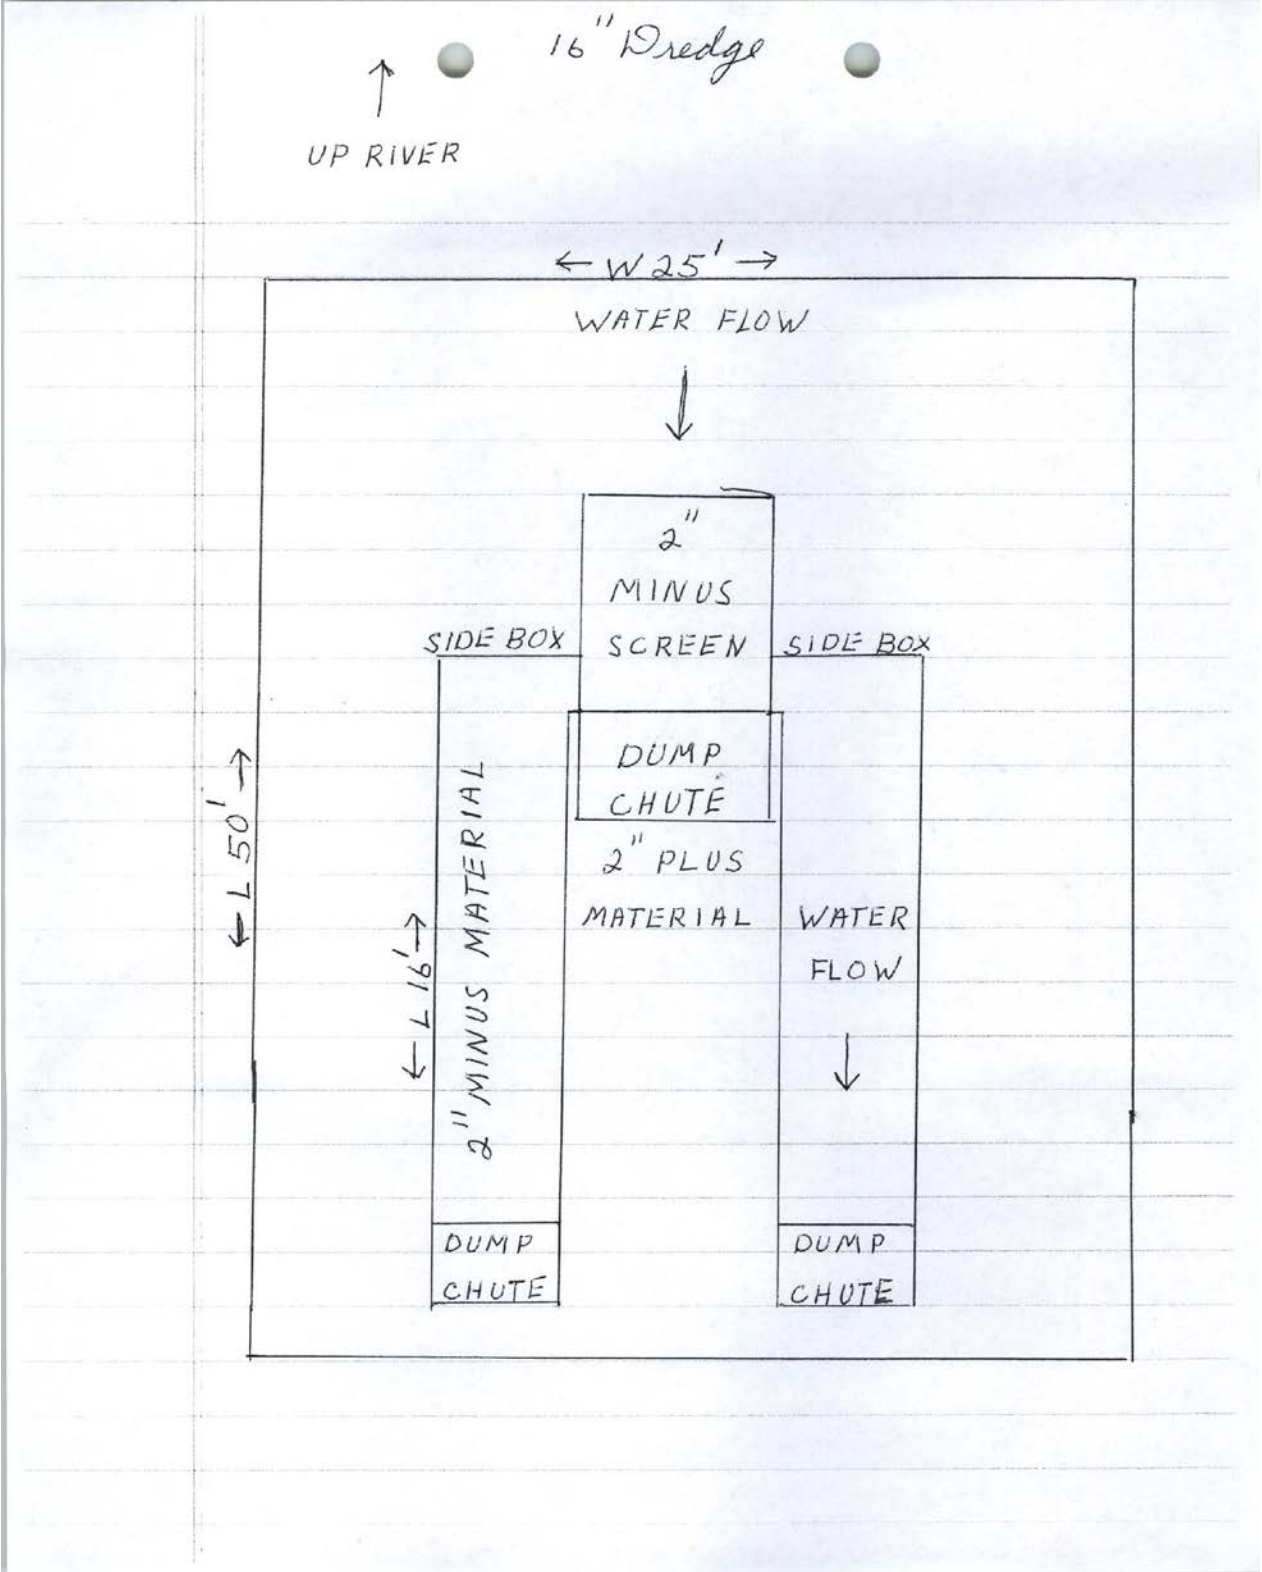 16" Dredge
UP RIVER
W 25'
WATER FLOW
2"
MINUS
SCREEN
SIDE BOX
SIDE BOX
DUMP
CHUTE
2" PLUS
MATERIAL
L 50'
L 16'
2" MINUS MATERIAL
WATER
FLOW
DUMP
CHUTE
DUMP
CHUTE